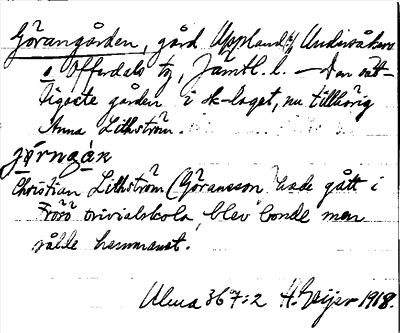 Görangården, gård Uppland, Undersåkers
o Offerdals tg, Jämtl. l. — Den ståt-
ligaste gården i sk-laget, nu tillhörig
Anna Lithström.
görngán
Christian Lithström (Göransson) hade gått i
Frösö trivialskola, blev bonde men
sålde hemmanet.
Ulma 367:2 H. Geijer 1918.